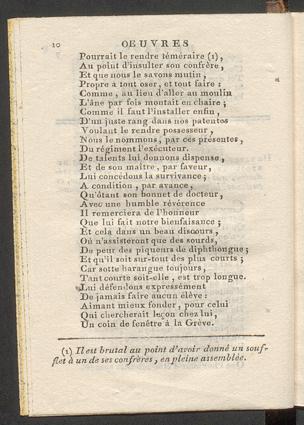 10 OEUVRES
Pourrait le rendre téméraire (1),
Au point d'insulter son confrère,
Et que nous le savons mutin,
Propre à tout oser, et tout faire :
Comme, au lieu d'aller au moulin
L'âne par fois montait en chaire ;
Comme il faut l'installer enfin,
D'un juste rang dans nos patentes
Voulant le rendre possesseur,
Nous le nommons, par ces présentes,
Du régiment l'exécuteur.
De talents lui donnons dispense,
Et de son maître, par faveur,
Lui concédons la survivance ;
A condition, par avance,
Qu'ôtant son bonnet de docteur,
Avec une humble révérence
Il remerciera de l'honneur
Que lui fait notre bienfaisance ;
Et cela dans un beau discours,
Où n'assisteront que des sourds,
De peur des piqueurs de diphthongue ;
Et qu'il soit sur-tout des plus courts ;
Car sotte harangue toujours,
Tant courte soit-elle, est trop longue.
Lui défendons expressément
De jamais faire aucun élève :
Aimant mieux fonder, pour celui
Qui chercherait leçon chez lui,
Un coin de fenêtre à la Grève.
(1) Il est brutal au point d'avoir donné un souf-
flet à un de ses confrères, en pleine assemblée.